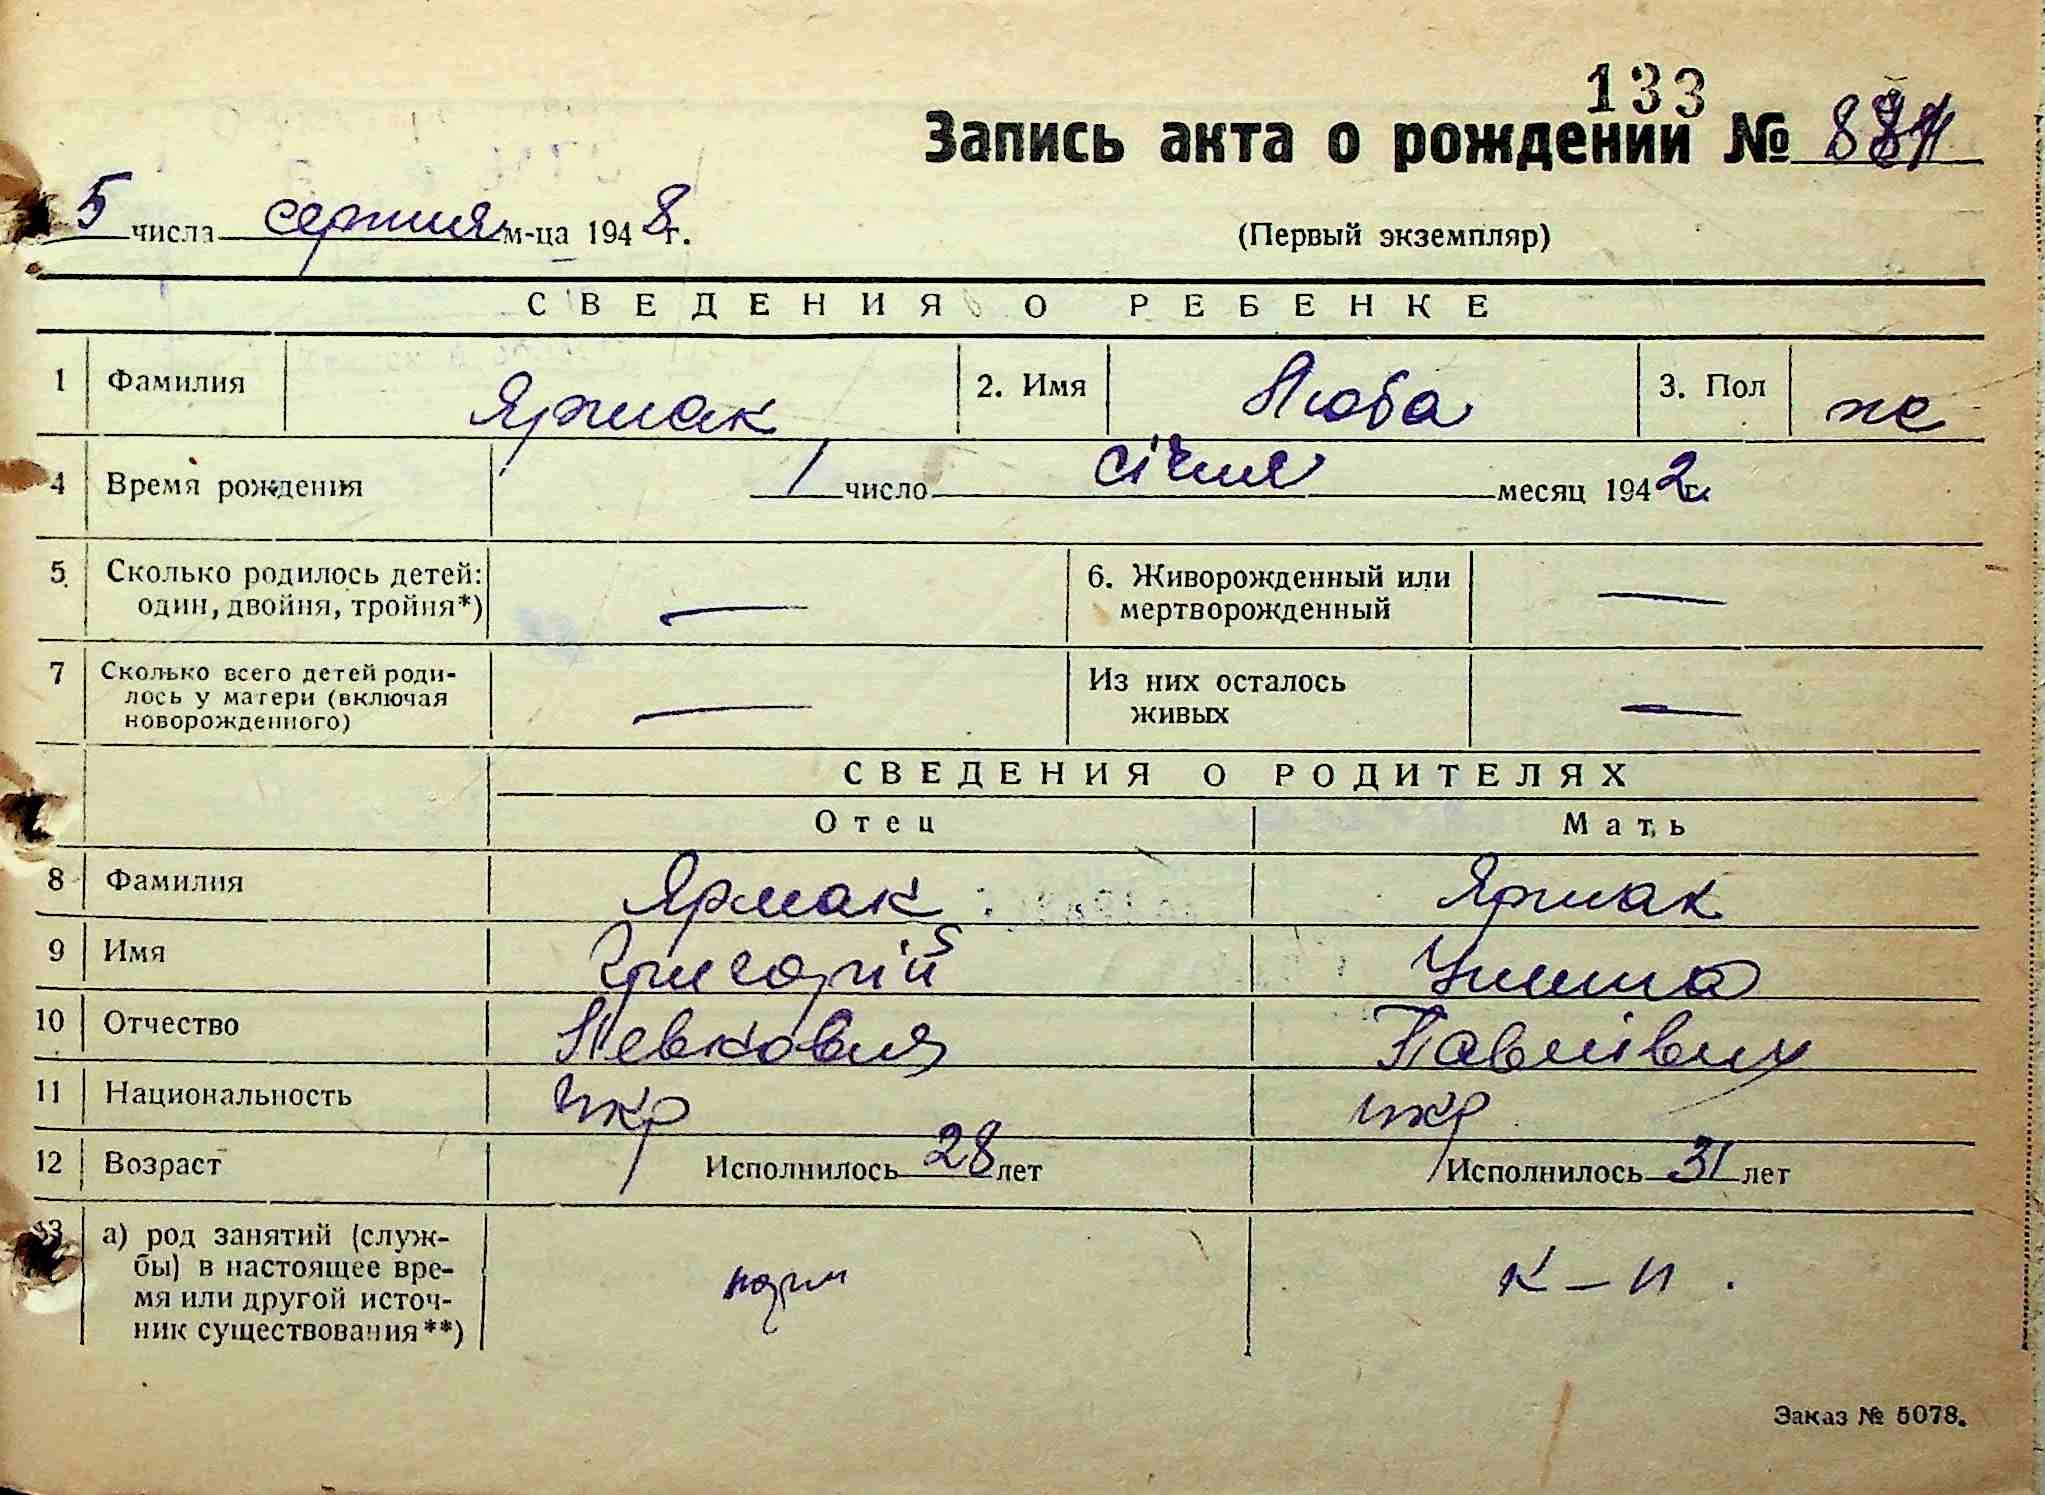 133
Запись акта о рождении №
5 числа серпня м-ца 1948 г.
(Первый экземпляр)
СВЕДЕНИЯ О РЕБЕНКЕ
1 Фамилия Ярмак 2. Имя Люба 3. Пол же
4 Время рождения 1 число січня месяц 1942 г.
5 Сколько родилось детей: один, двойня, тройня*) — 6. Живорожденный или мертворожденный —
7 Сколько всего детей родилось у матери (включая новорожденного) — Из них осталось живых —
СВЕДЕНИЯ О РОДИТЕЛЯХ
Отец Мать
8 Фамилия Ярмак Ярмак
9 Имя Григорій Улита
10 Отчество Левкович Павлівна
11 Национальность укр укр
12 Возраст Исполнилось 28 лет Исполнилось 31 лет
13 а) род занятий (служ-
бы) в настоящее вре-
мя или другой источ-
ник существования**) к-п.
Заказ № 5078.